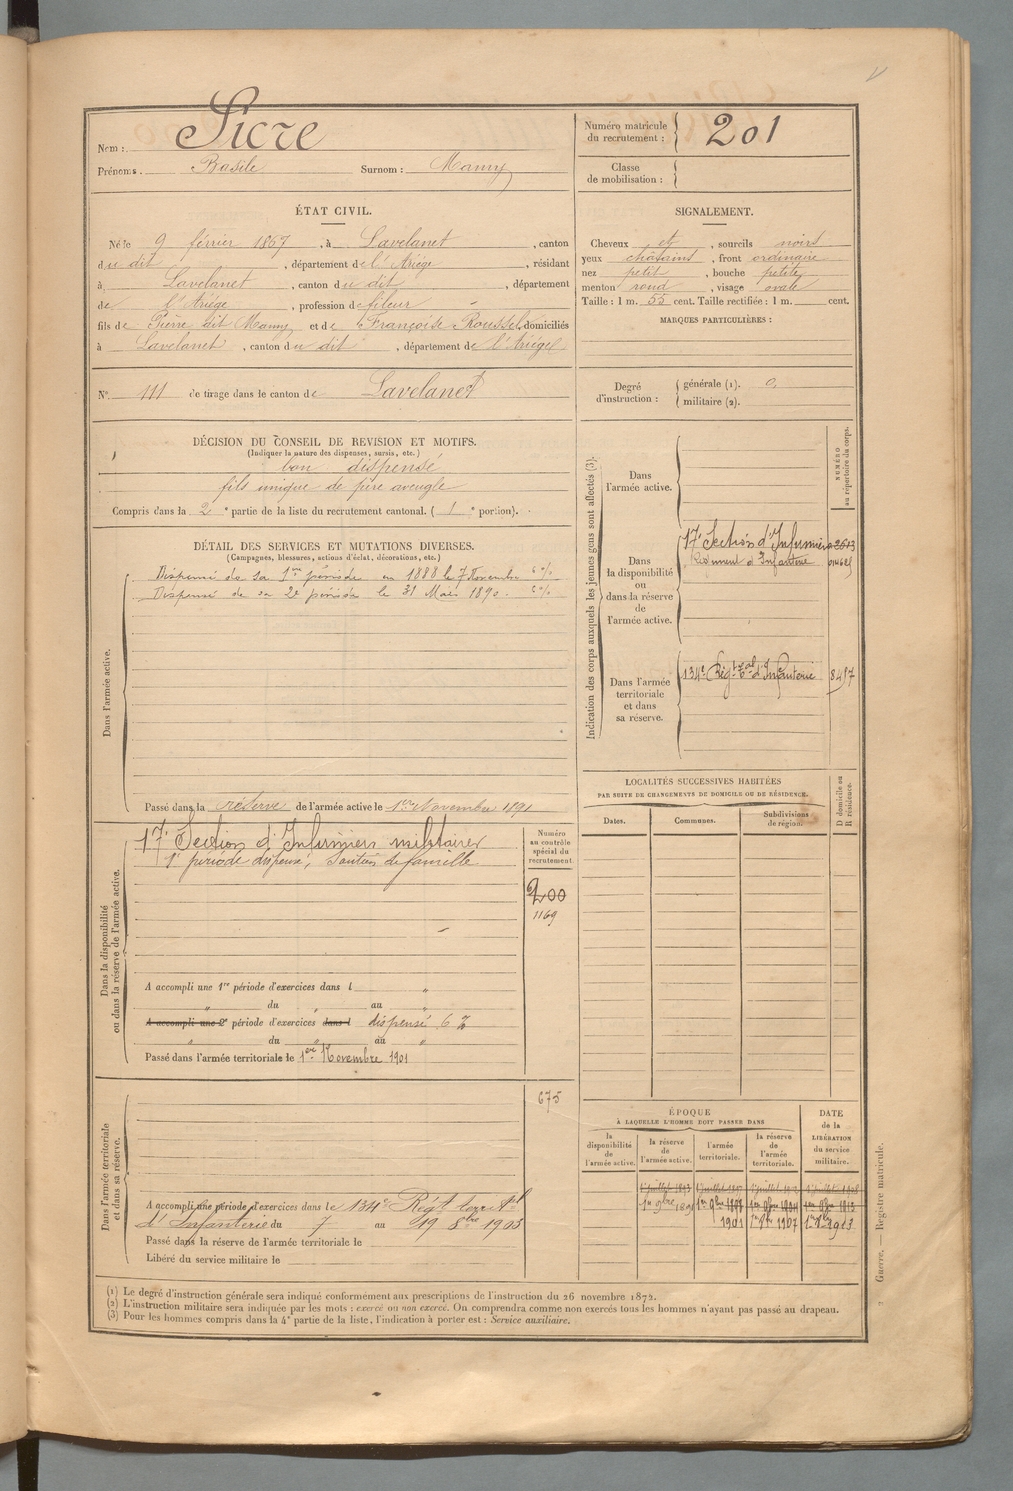 Nom : Sicre
Prénoms : Basile Surnom : Mamy
Numéro matricule du recrutement : 201
Classe de mobilisation :
ÉTAT CIVIL.
Né le 9 février 1867, à Lavelanet, canton
du dit, département de l'Ariège, résidant
à Lavelanet, canton du dit, département
de l'Ariège, profession de fileur
fils de Pierre dit Mamy et de Françoise Roussel, domiciliés
à Lavelanet, canton du dit, département de l'Ariège
SIGNALEMENT.
Cheveux et, sourcils noirs
yeux chatains, front ordinaire
nez petit, bouche petite
menton rond, visage ovale
Taille : 1 m. 55 cent. Taille rectifiée : 1 m. cent.
MARQUES PARTICULIÈRES :
N° 111 de tirage dans le canton de Lavelanet
Degré d'instruction : générale (1). 0,
militaire (2).
DÉCISION DU CONSEIL DE REVISION ET MOTIFS.
(Indiquer la nature des dispenses, sursis, etc.)
bon dispensé
fils unique de père aveugle
Compris dans la 2e partie de la liste du recrutement cantonal. ( 1e portion).
DÉTAIL DES SERVICES ET MUTATIONS DIVERSES.
(Campagnes, blessures, actions d'éclat, décorations, etc.)
Dans l'armée active.
Dispensé de sa 1re période en 1888 le 7 Novembre 6 %
Dispensé de sa 2e période le 31 Mars 1890. 6 %
Passé dans la réserve de l'armée active le 1er Novembre 1891
Dans la disponibilité ou dans la réserve de l'armée active.
17e Section d'Infirmiers militaires
1e période dispensé, Soutien de famille
Numéro au contrôle spécial du recrutement
200
1169
A accompli une 1re période d'exercices dans l "
" du " au "
A accompli une 2e période d'exercices dans l dispensé 6 %
" du " au "
Passé dans l'armée territoriale le 1er Novembre 1901
Dans l'armée territoriale et dans sa réserve.
675
A accompli une période d'exercices dans le 134e Régt territal
d'Infanterie du 7 au 19 8bre 1903
Passé dans la réserve de l'armée territoriale le
Libéré du service militaire le
Indication des corps auxquels les jeunes gens sont affectés (3).
NUMÉRO au répertoire du corps.
Dans l'armée active.
Dans la disponibilité ou dans la réserve de l'armée active.
17e Section d'Infirmiers
Régiment d'Infanterie
Dans l'armée territoriale et dans sa réserve.
134e Régt tal d'Infanterie 8417
LOCALITÉS SUCCESSIVES HABITÉES
PAR SUITE DE CHANGEMENTS DE DOMICILE OU DE RÉSIDENCE.
Dates. Communes. Subdivisions de région. D domicile ou R résidence.
ÉPOQUE
À LAQUELLE L'HOMME DOIT PASSER DANS
DATE de la LIBÉRATION du service militaire.
la disponibilité de l'armée active. la réserve de l'armée active. l'armée territoriale. la réserve de l'armée territoriale.
1er 9bre 1891 1er 9bre 1898
1901 1er 8bre 1907 1er 8bre 1913
(1) Le degré d'instruction générale sera indiqué conformément aux prescriptions de l'instruction du 26 novembre 1872.
(2) L'instruction militaire sera indiquée par les mots : exercé ou non exercé. On comprendra comme non exercés tous les hommes n'ayant pas passé au drapeau.
(3) Pour les hommes compris dans la 4e partie de la liste, l'indication à porter est : Service auxiliaire.
Guerre. — Registre matricule.